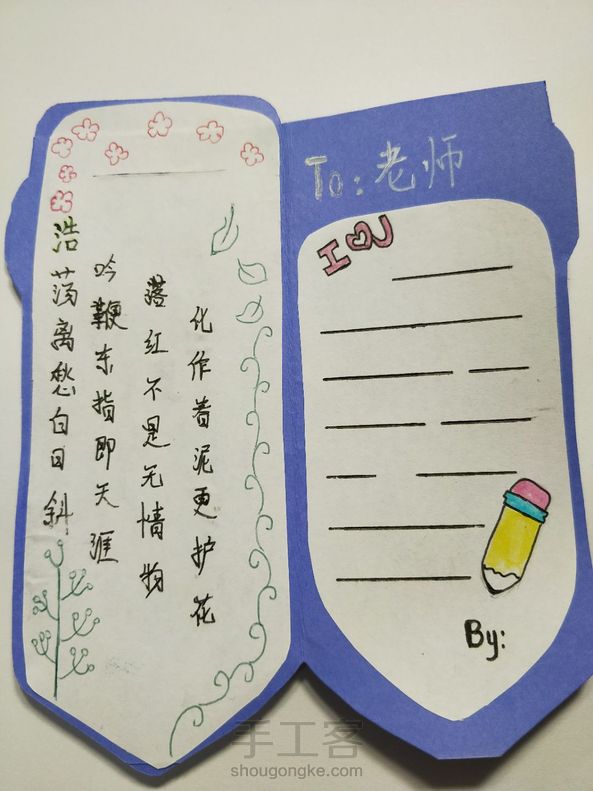 浩荡离愁白日斜
吟鞭东指即天涯
落红不是无情物
化作春泥更护花
To:老师
I ♡ U
By:
手工客
shougongke.com